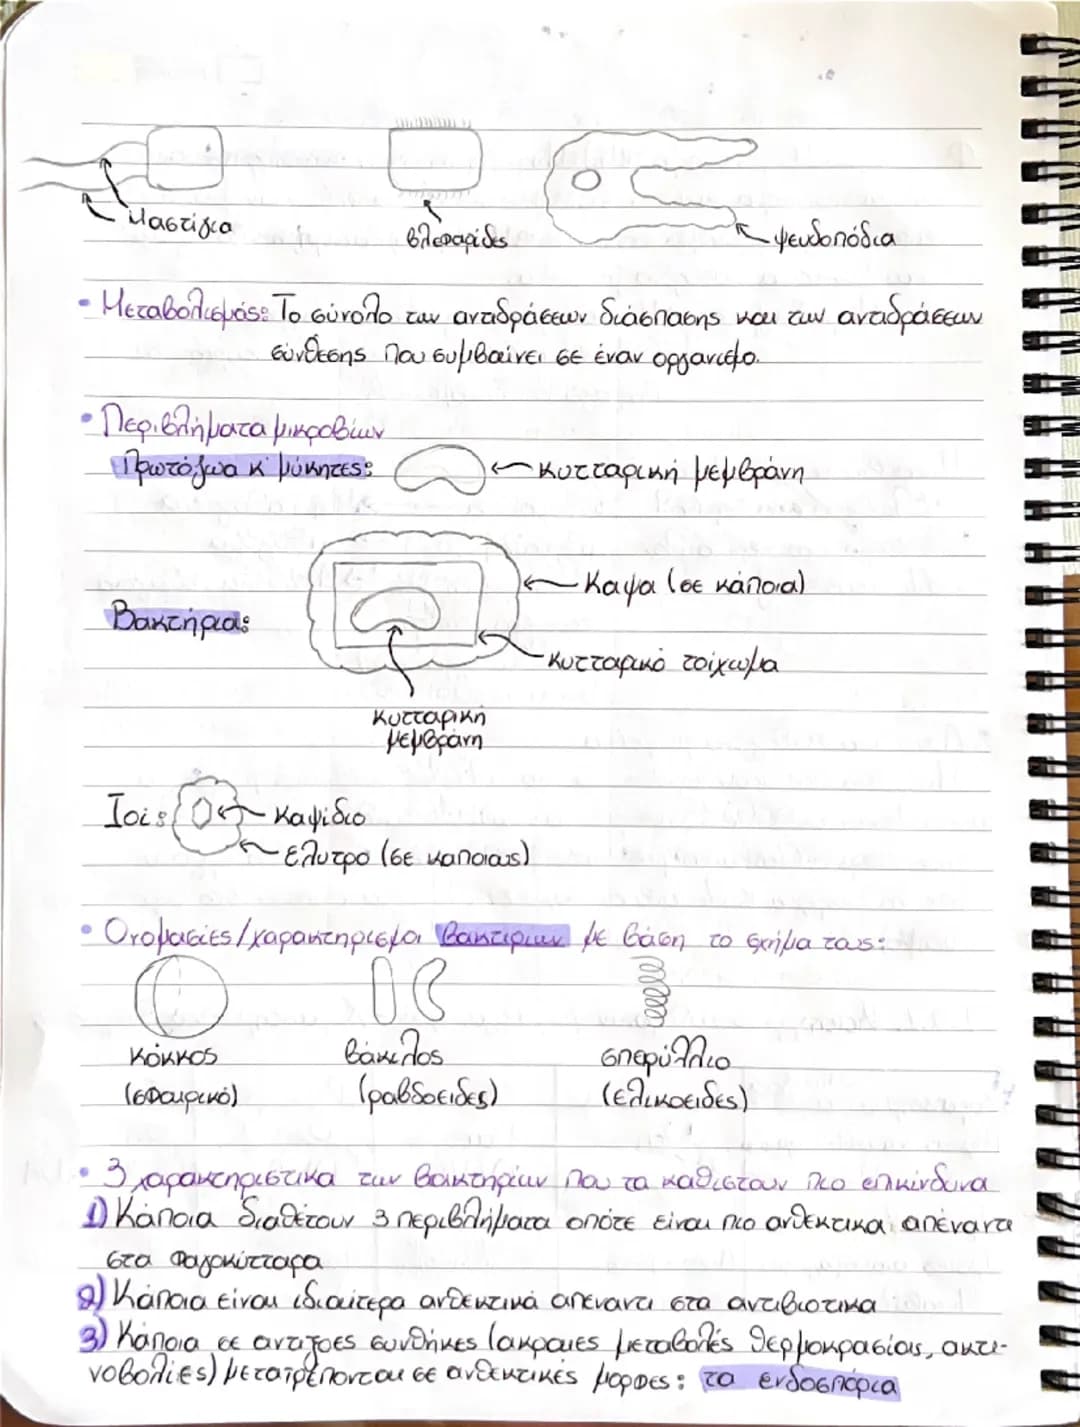 Μαστίγια
βλεφαρίδες
ψευδοπόδια
• Μεταβολισμός: Το σύνολο των αντιδράσεων διάσπασης και των αντιδράσεων
σύνθεσης που συμβαίνει σε έναν οργανισμό.
• Περιβλήματα μικροβίων
Πρωτόζωα κ' μύκητες:
κυτταρική μεμβράνη
Καψα (σε κάποια)
Βακτήρια:
κυτταρικό τοίχωμα
κυτταρική
μεμβράνη
Ιοί:
καψίδιο
έλυτρο (σε καποιους)
• Ονομασίες/χαρακτηρισμοι βακτιριων με βάση το σχήμα τους:
κόκκος
βάκιλος
σπερύλλιο
(σφαιρικό)
(ραβδοειδες)
(ελικοειδες)
• 3 χαρακτηριστικα των βακτηρίων που τα καθιστουν πιο επικίνδυνα
1) Κάποια διαθέτουν 3 περιβλήματα οπότε είναι πιο ανθεκτικα απέναντι
στα φαγοκύτταρα
2) Κάποια είναι ιδιαίτερα ανθεκτικά απεναντι στα αντιβιοτικα
3) Κάποια σε αντιξοες συνθήκες (ακραιες μεταβολές θερμοκρασίας, ακτι-
νοβολίες) μετατρέπονται σε ανθεκτικές μορφες: τα ενδοσπόρια